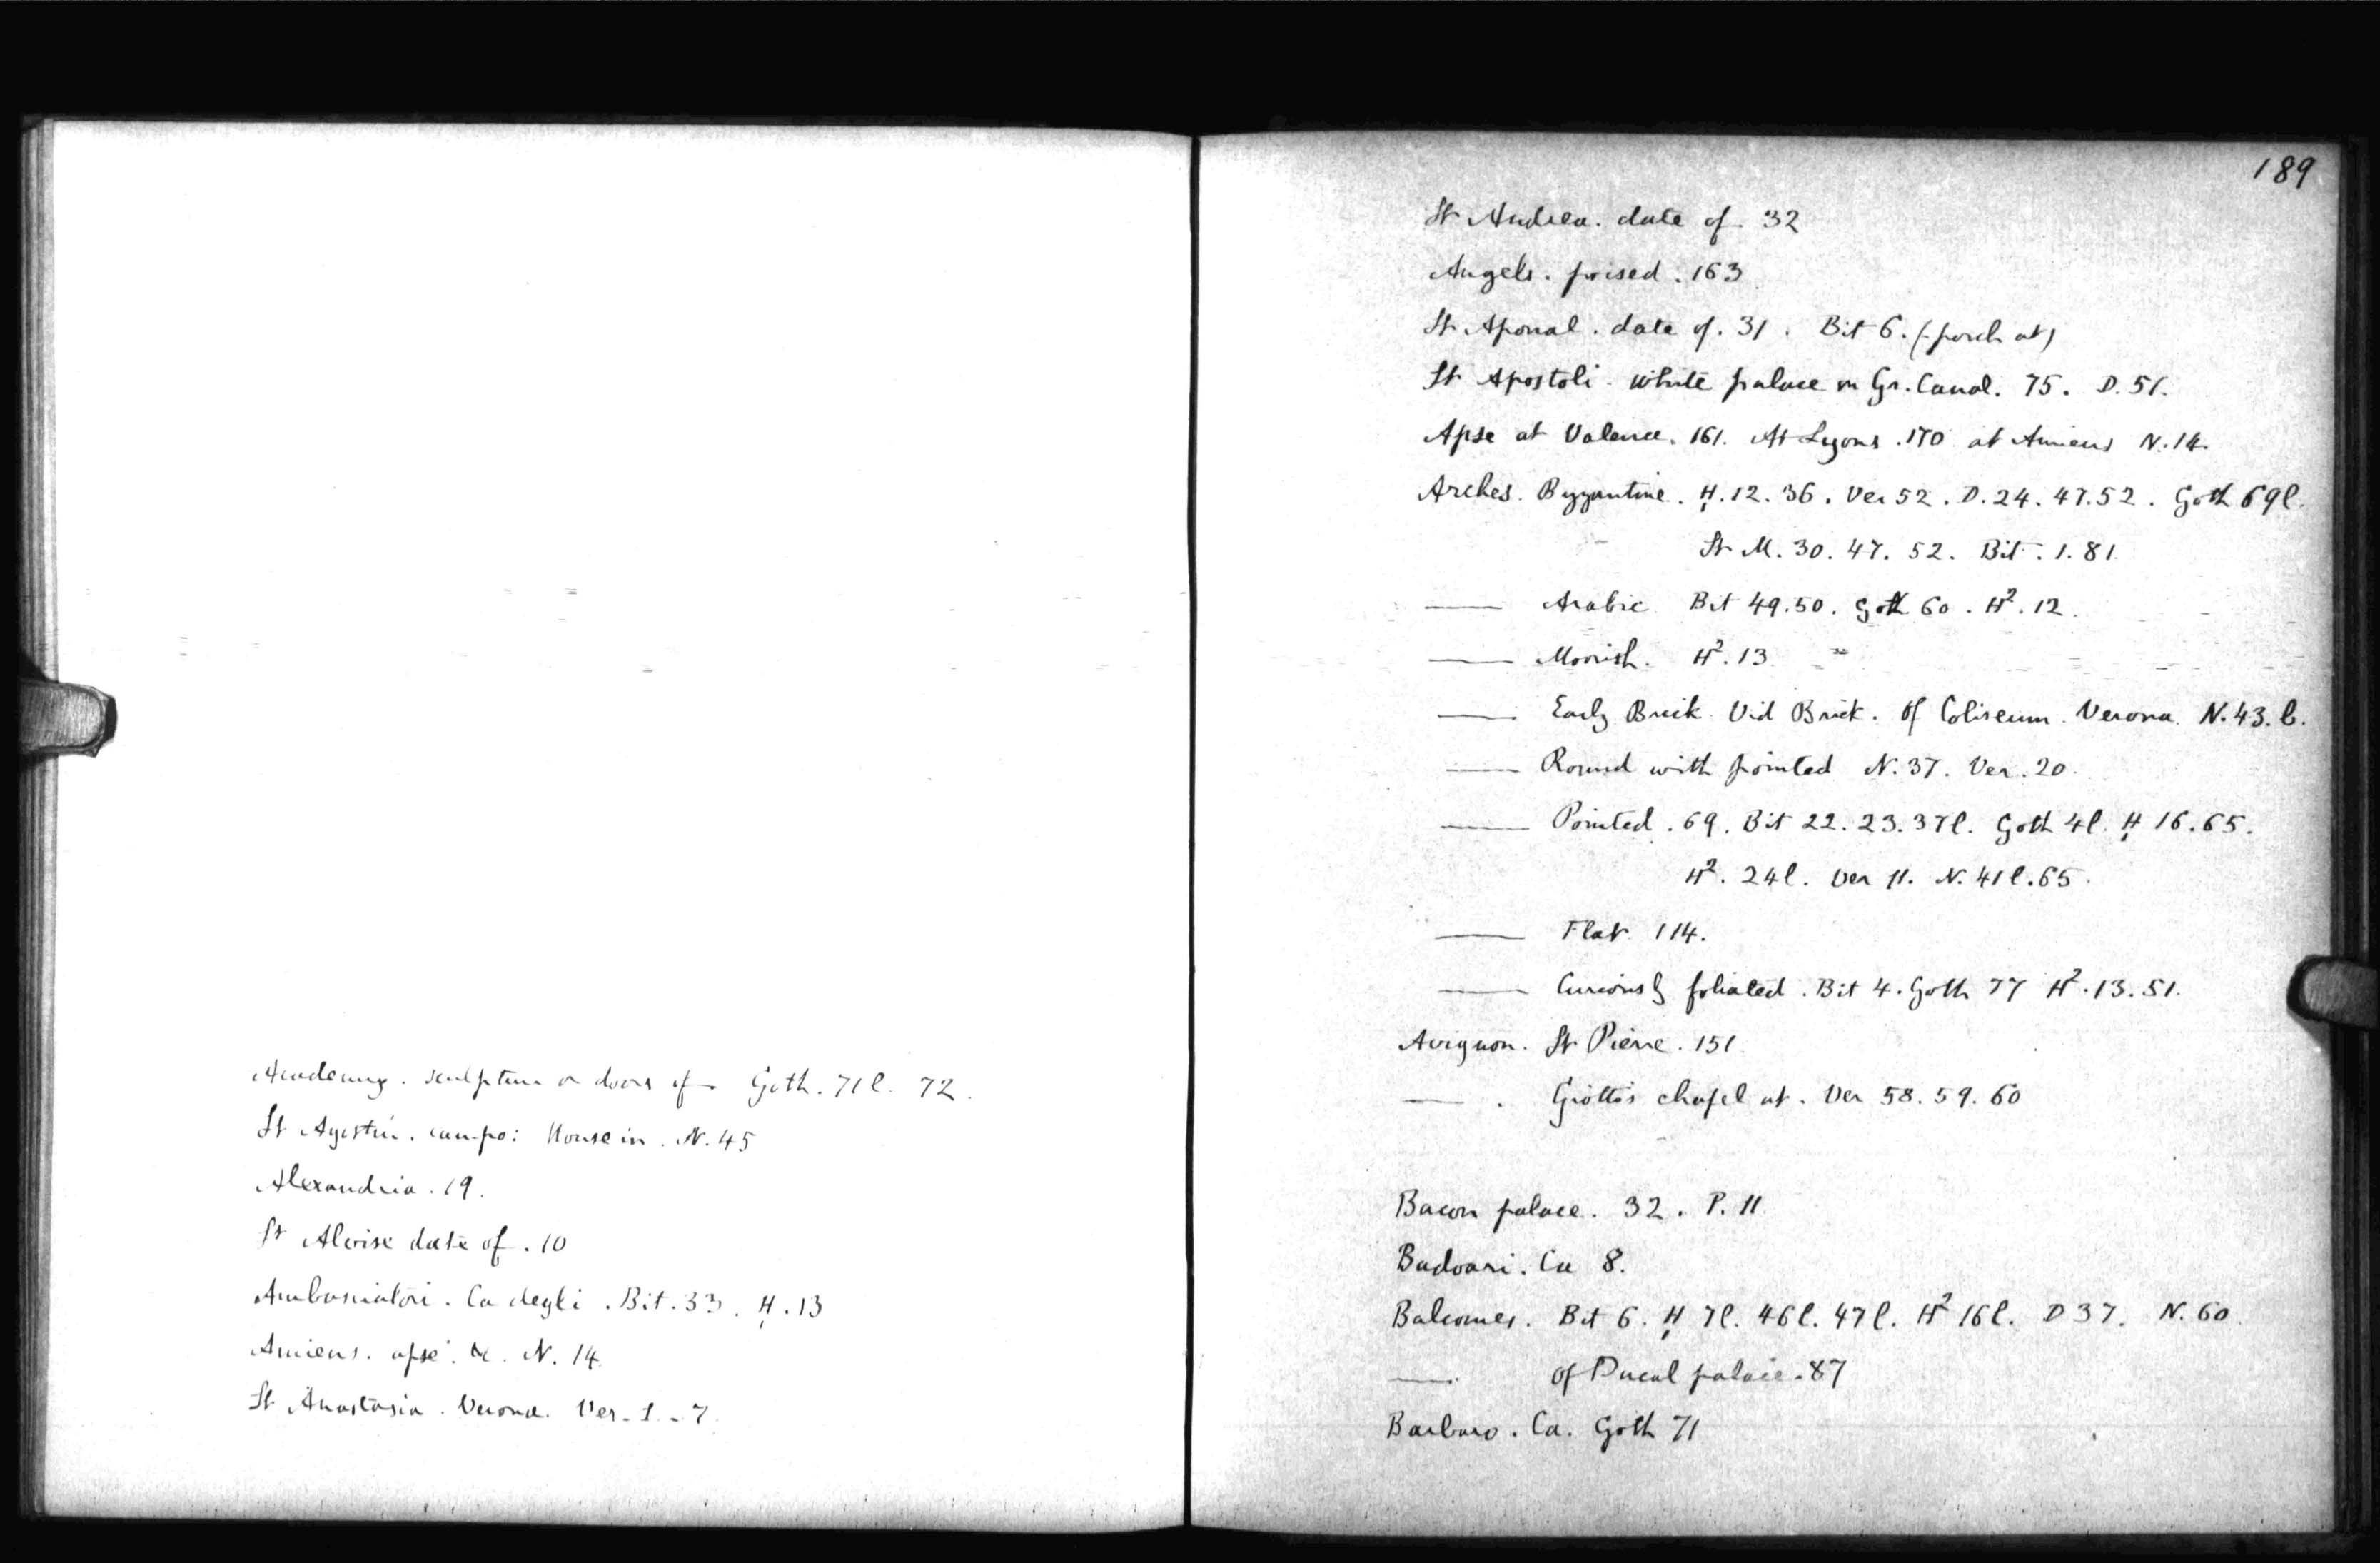 Academy. sculpture on doors of Goth. 71l. 72.
St Agostin. campo: House in. N. 45
Alexandria. 19.
St Alvise date of. 10
Ambasciatori. Ca degli. Bit. 33. H. 13
Amiens. apse. &c. N. 14
St Anastasia. Verona. Ver. 1. 7
189
St Andrea. date of 32
Angels. poised. 163
St Aponal. date of. 31. Bit 6. (porch at)
St Apostoli. white palace on Gr. Canal. 75. D. 51.
Apse at Valence. 161. At Lyons. 170 at Amiens N. 14.
Arches. Byzantine. H. 12. 36. Ver 52. D. 24. 47. 52. Goth 69l.
St M. 30. 47. 52. Bit. 1. 81.
—— Arabic Bit 49. 50. Goth 60. H². 12.
—— Moorish. H². 13
—— Early Brick. Vid Brick. Of Coliseum. Verona. N. 43. b.
—— Round with pointed N. 37. Ver. 20.
—— Pointed. 69. Bit 22. 23. 37l. Goth 4l. H 16. 65.
H². 24l. Ver 11. N. 41l. 65.
—— Flat. 114.
—— Curiously foliated. Bit 4. Goth 77 H². 13. 51.
Avignon. St Pierre. 151
—— . Giotto's chapel at. Ver 58. 59. 60
Bacon palace. 32. P. 11
Badoari. Ca 8.
Balconies. Bit 6. H 7l. 46l. 47l. H² 16l. D 37. N. 60.
—— of Ducal palace. 87
Barbaro. Ca. Goth 71